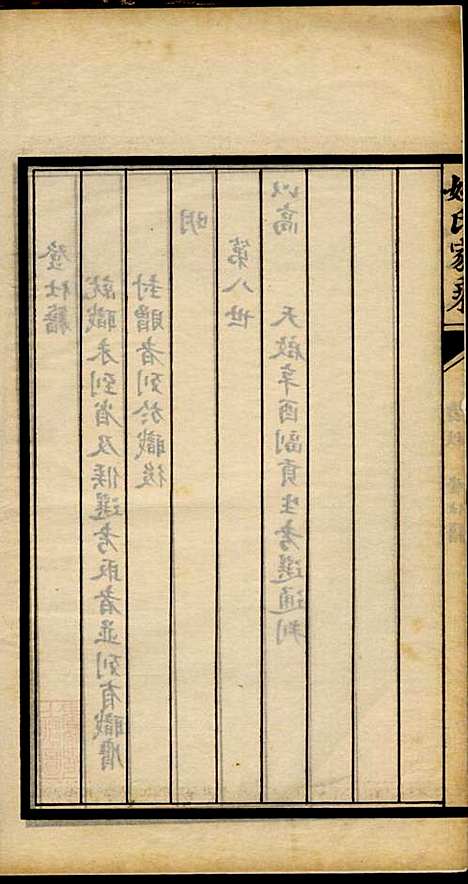 氏家乘
登仕籍
就職未到省及候選考取者並列有職膺
封贈者列於職後
明
第八世
以高　天啟辛酉副貢生考選通判